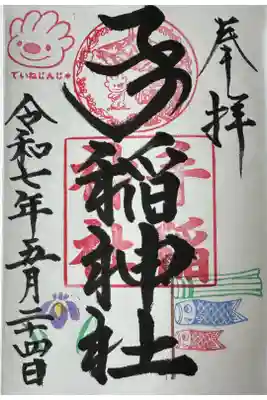 奉拝
手稲神社
令和七年五月二十四日
ていねじんじゃ
手稲
神社